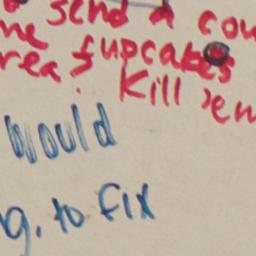 send a cou
me fupcakes
rea?
Kill 'em
would
g. to fix